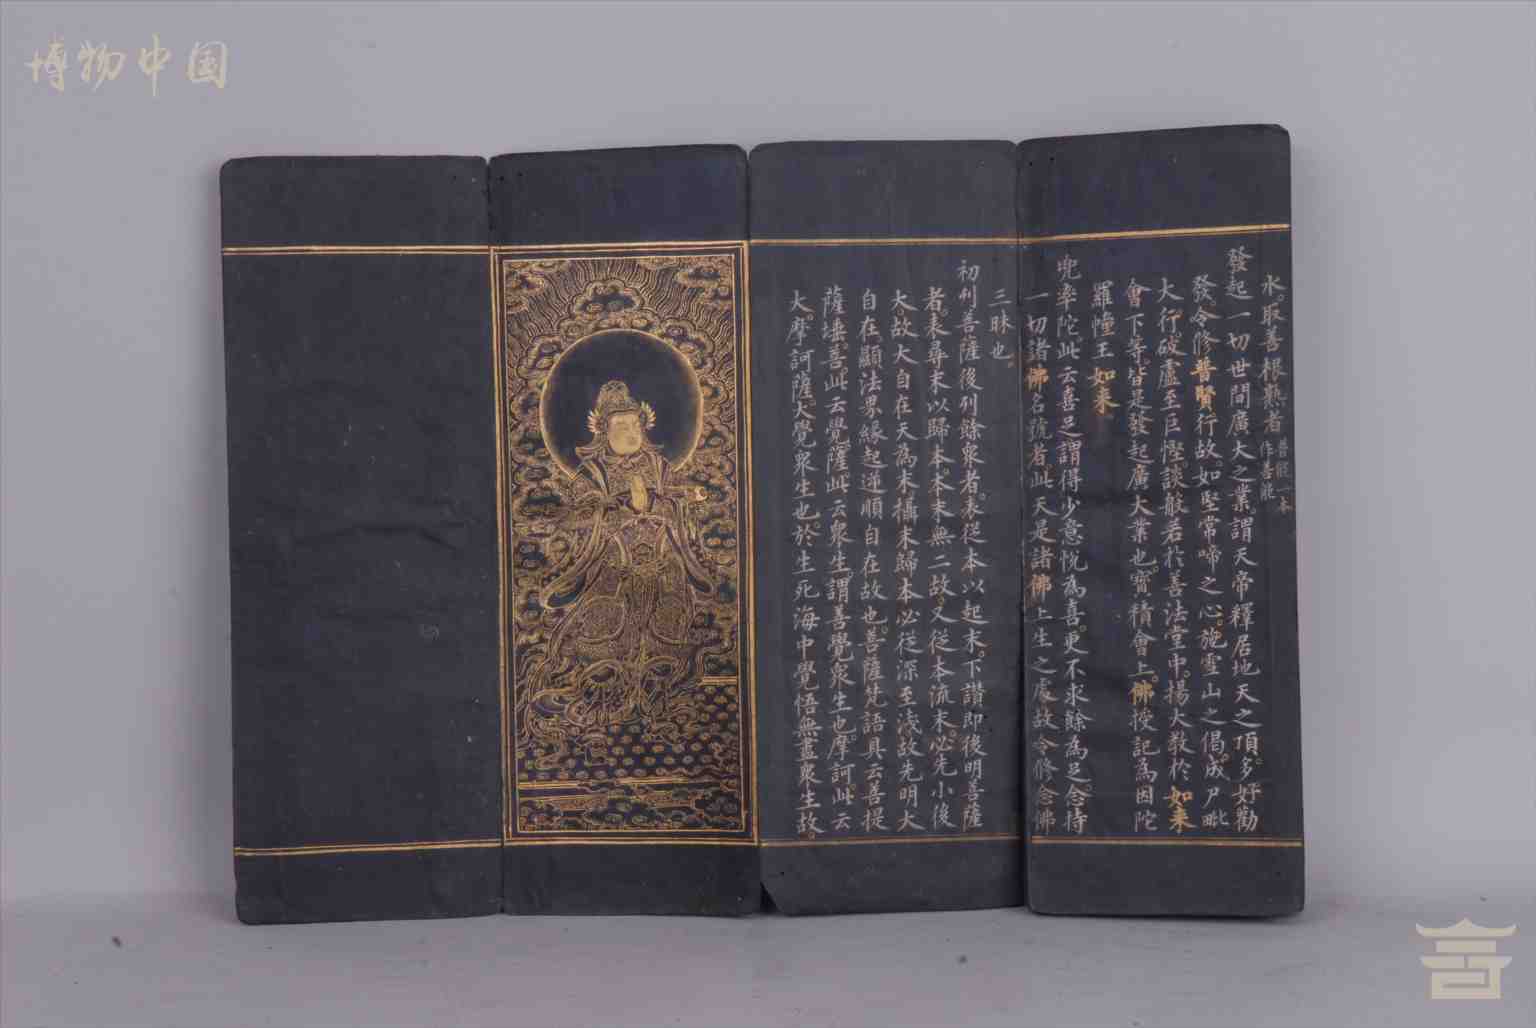 博物中国
水。取善根熟者 善能一本作善能
發起一切世間廣大之業。謂天帝釋居地天之頂。多好勸
發。令修普賢行故。如堅常啼之心。施雪山之偈。成尸毗
大行。破盧至巨慳。談般若於善法堂中。揚大教於如来
會下。等皆是發起廣大業也。寶積會上。佛授記為因陀
羅幢王如来
兜率陀。此云喜足。謂得少意悅為喜。更不求餘為足。念持
一切諸佛名號者。此天是諸佛上生之處。故令修念佛
三昧也。
初列菩薩後列餘衆者。表從本以起末。下讚即後明菩薩
者。表尋末以歸本。本末無二故。又從本流末。必先小後
大。故大自在天為末。攝末歸本。必從深至淺。故先明大
自在。顯法界緣起逆順自在故也。菩薩梵語具云菩提
薩埵。菩此云覺。薩此云衆生。謂善覺衆生也。摩訶此云
大。摩訶薩大覺衆生也。於生死海中覺悟無盡衆生故。